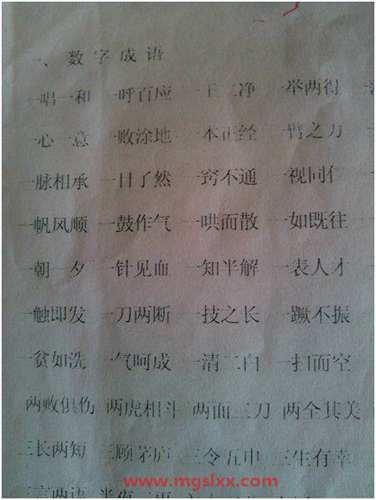 一、数字成语
一唱一和 一呼百应 一干二净 一举两得
一心一意 一败涂地 一本正经 一臂之力
一脉相承 一目了然 一窍不通 一视同仁
一帆风顺 一鼓作气 一哄而散 一如既往
一朝一夕 一针见血 一知半解 一表人才
一触即发 一刀两断 一技之长 一蹶不振
一贫如洗 一气呵成 一清二白 一扫而空
两败俱伤 两虎相斗 两面三刀 两全其美
三长两短 三顾茅庐 三令五申 三生有幸
www.mgslxx.com